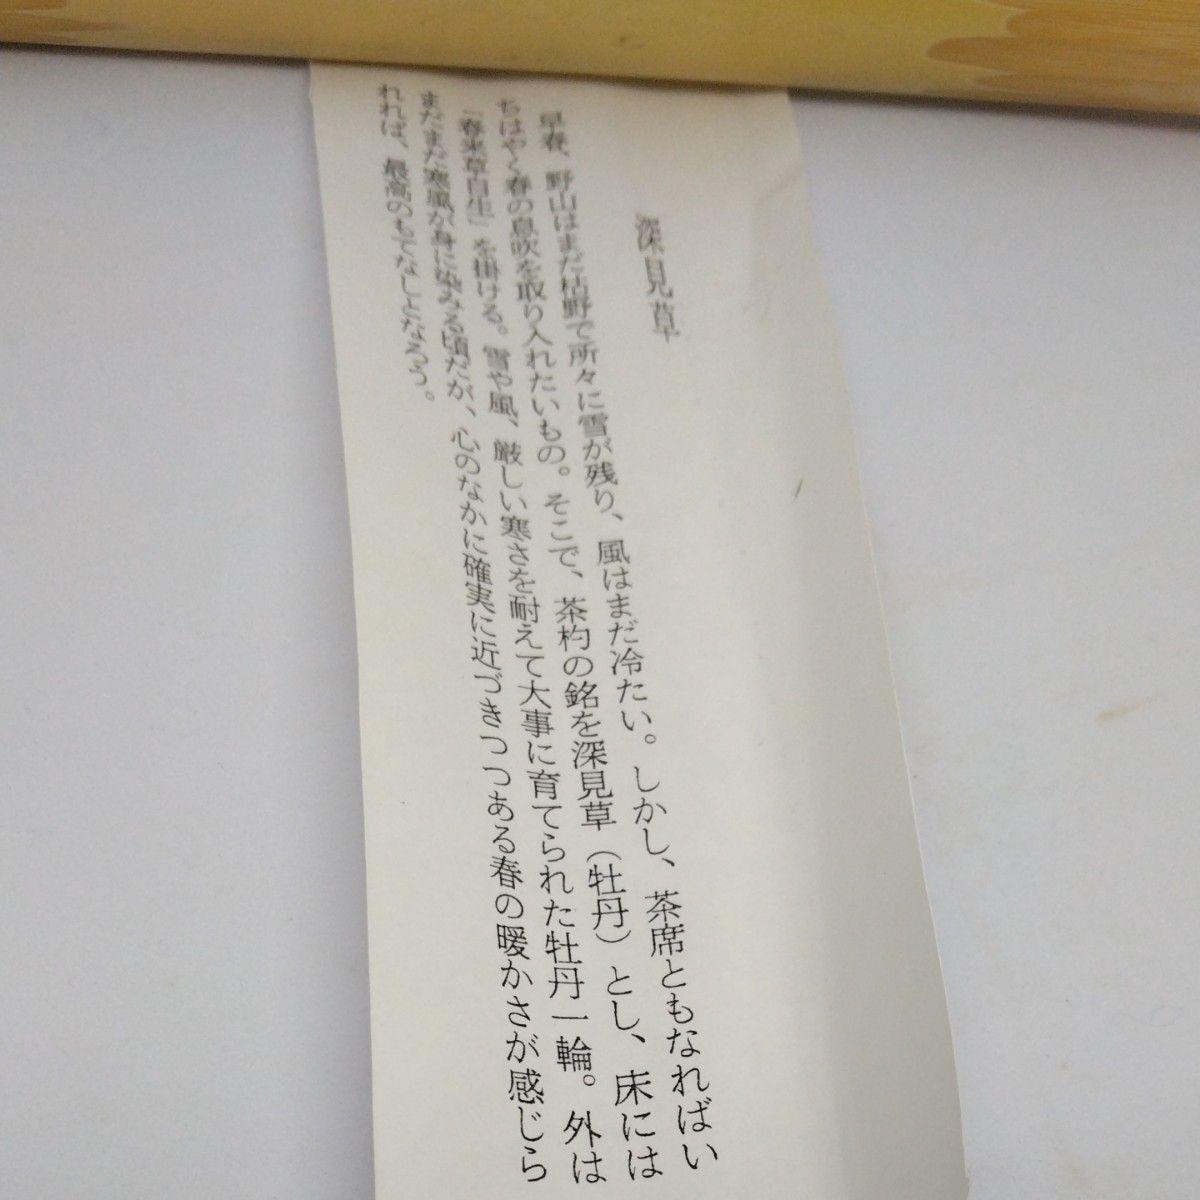 深見草
早春、野山はまだ枯野で所々に雪が残り、風はまだ冷たい。しかし、茶席ともなればい
ちはやく春の息吹を取り入れたいもの。そこで、茶杓の銘を深見草（牡丹）とし、床には
「春来草自生」を掛ける。雪や風、厳しい寒さを耐えて大事に育てられた牡丹一輪。外は
まだまだ寒風が身に染みる頃だが、心のなかに確実に近づきつつある春の暖かさが感じら
れれば、最高のもてなしとなろう。